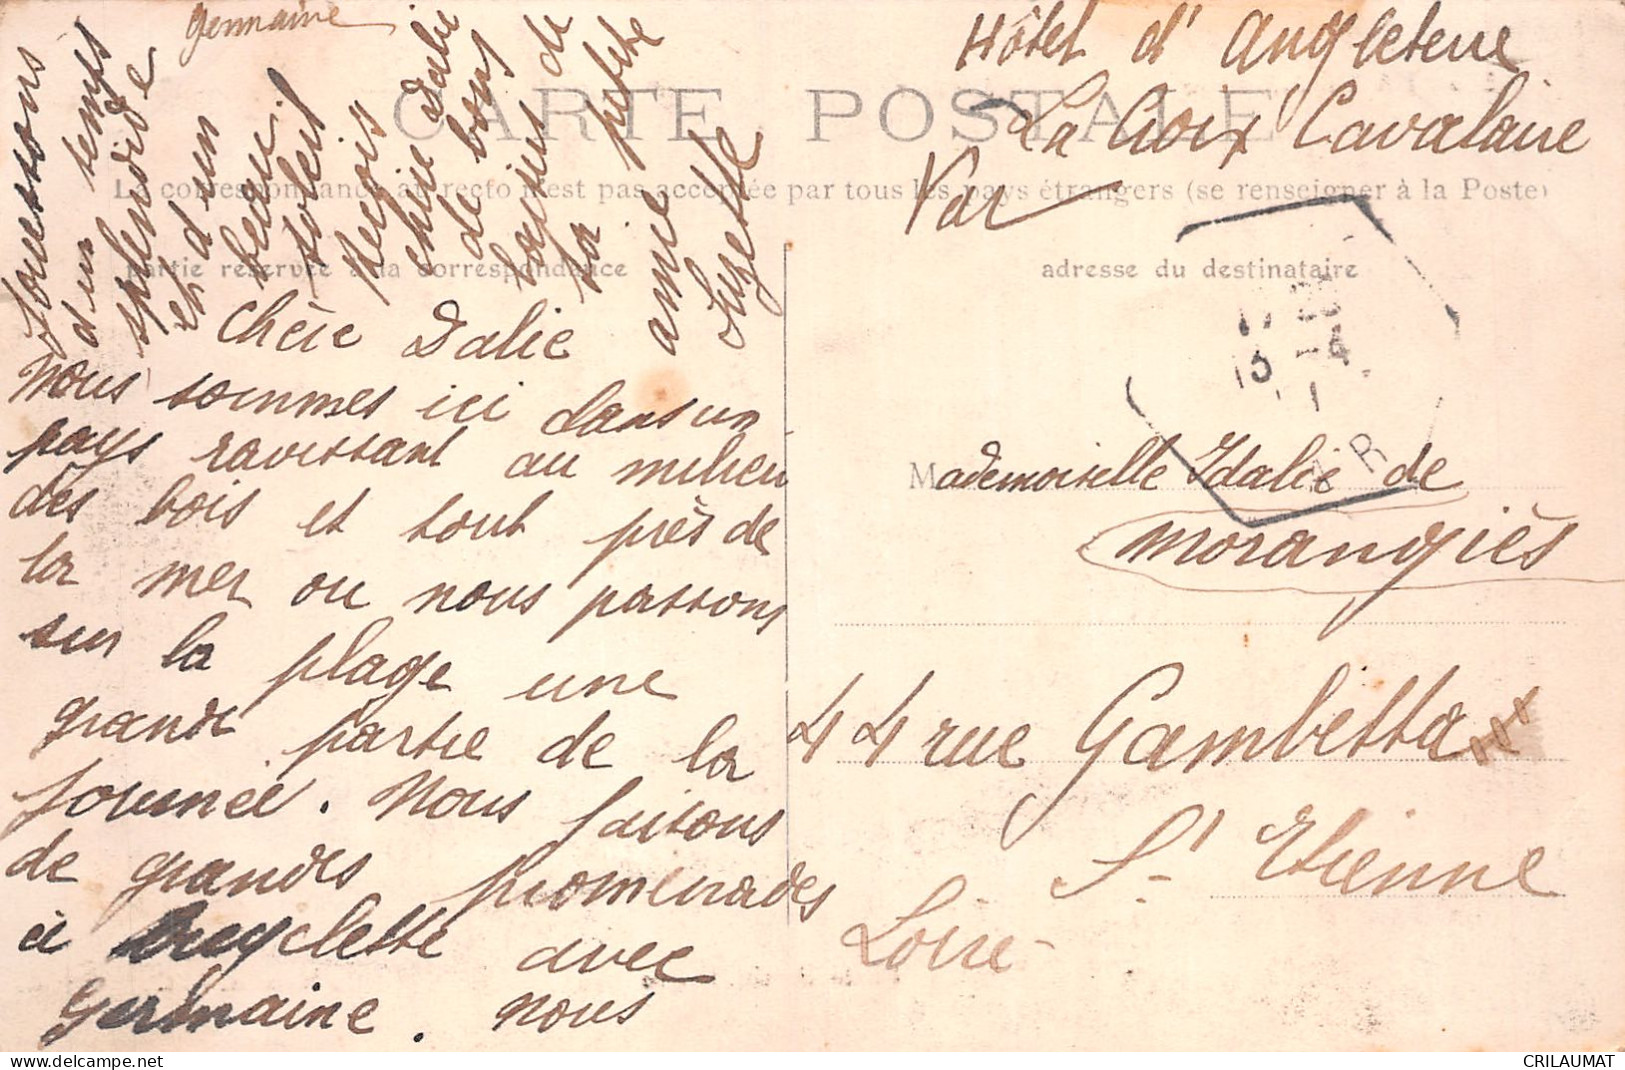 Germaine
Hôtel d'Angleterre
La Croix Cavalaire
Var
CARTE POSTALE
La correspondance au recto n'est pas acceptée par tous les pays étrangers (se renseigner à la Poste)
partie réservée à la correspondance
adresse du destinataire
Chère Dalie
Nous sommes ici dans un
pays ravissant au milieu
des bois et tout près de
la mer ou nous passons
sur la plage une
grande partie de la
journée. Nous faisons
de grandes promenades
à bicyclette avec
Germaine. Nous
jouissons
d'un temps
splendide
et d'un
beau
soleil
Reçois
chère Dalie
de bons
baisers de
ta petite
amie
Suzette
Mademoiselle Idalie de
Morangiès
44 rue Gambetta
St Etienne
Loire
13 -4
delcampe.net
CRILAUMAT